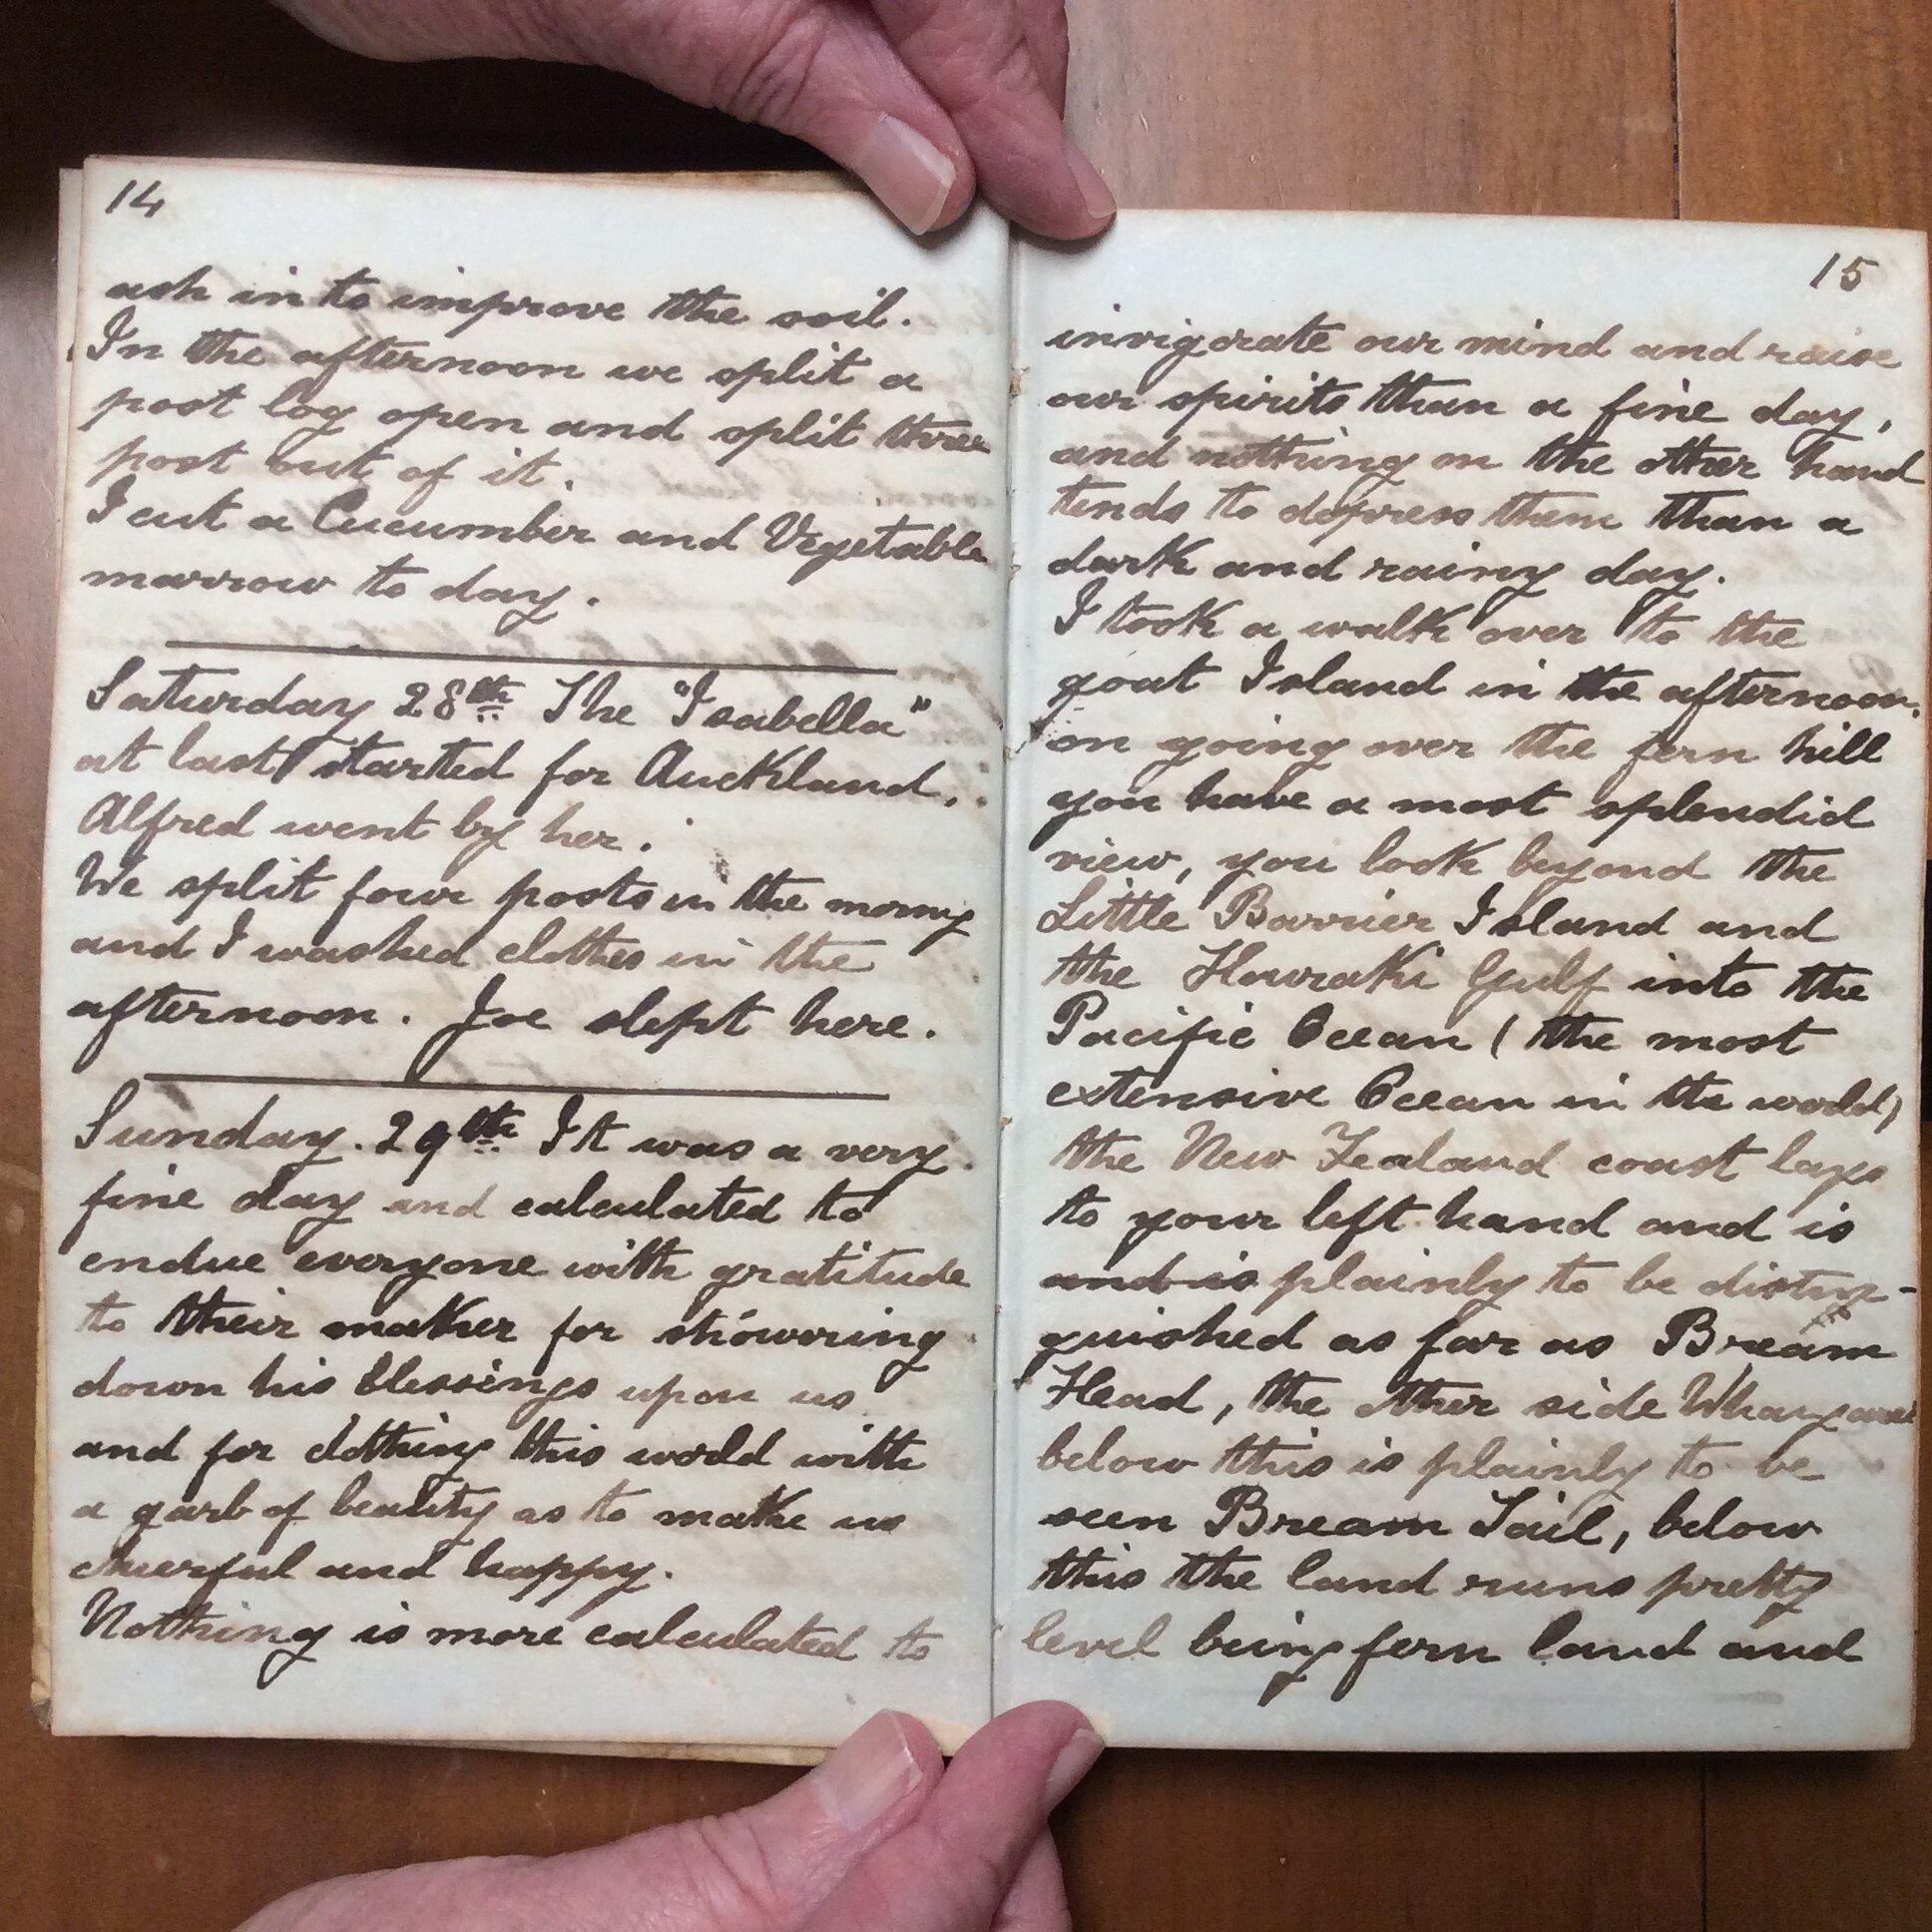 14
ash in to improve the soil.
In the afternoon we split a
post log open and split three
post out of it.
I cut a Cucumber and Vegetable
marrow to day.
Saturday 28th The "Isabella"
at last started for Auckland.
Alfred went by her.
We split four posts in the morng
and I washed clothes in the
afternoon. Joe slept here.
Sunday. 29th It was a very
fine day and calculated to
endue everyone with gratitude
to their maker for showering
down his blessings upon us
and for clothing this world with
a garb of beauty as to make us
cheerful and happy.
Nothing is more calculated to
15
invigorate our mind and raise
our spirits than a fine day,
and nothing on the other hand
tends to depress them than a
dark and rainy day.
I took a walk over to the
goat Island in the afternoon.
on going over the fern hill
you have a most splendid
view, you look beyond the
Little Barrier Island and
the Houraki Gulf into the
Pacific Ocean (the most
extensive Ocean in the world)
the New Zealand coast lays
to your left hand and is
and is plainly to be distin-
guished as far as Bream
Head, the other side Whangarei
below this is plainly to be
seen Bream Tail, below
this the land runs pretty
level being fern land and